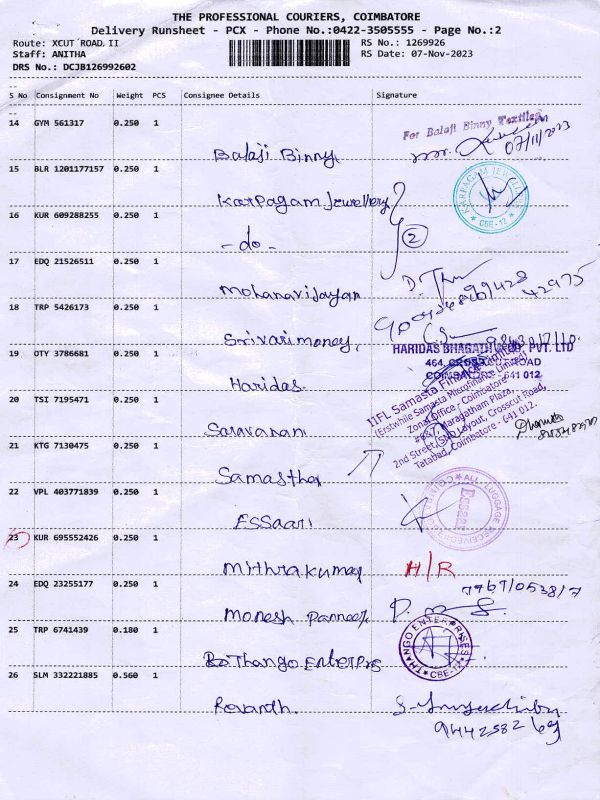 THE PROFESSIONAL COURIERS, COIMBATORE
Delivery Runsheet - PCX - Phone No.:0422-3505555 - Page No.:2
Route: XCUT ROAD, II
RS No.: 1269926
Staff: ANITHA
RS Date: 07-Nov-2023
DRS No.: DCJB126992602
S No Consignment No Weight PCS Consignee Details Signature
14 GYM 561317 0.250 1
For Balaji Binny Textiles
Balaji Binny
07/11/2023
15 BLR 1201177157 0.250 1
Karpagam Jewellery
KARPAGAM JEWELLERS
* CBE-12 *
16 KUR 609288255 0.250 1
- do -
2
17 EDQ 21526511 0.250 1
Mohanavijayan
42975
18 TRP 5426173 0.250 1
Srivarimoney
19 OTY 3786681 0.250 1
HARIDAS BHAGATH PVT. LTD
464, CROSS CUT ROAD
COIMBATORE - 641 012
Haridas
20 TSI 7195471 0.250 1
Saravanan
IIFL Samasta Finance Limited
(Erstwhile Samasta Microfinance Limited)
Zonal Office : Coimbatore
Maragatham Plaza,
2nd Street, Layout, Crosscut Road,
Tatabad, Coimbatore - 641 012.
21 KTG 7130475 0.250 1
Samastha
22 VPL 403771839 0.250 1
ESSaari
Essaar
23 KUR 695552426 0.250 1
Mithrakumar
H/R
24 EDQ 23255177 0.250 1
Monesh Panneer
25 TRP 6741439 0.180 1
Thango Enterprs
THANGO ENTERPRISES
* CBE-12 *
26 SLM 332221885 0.560 1
Revardh.